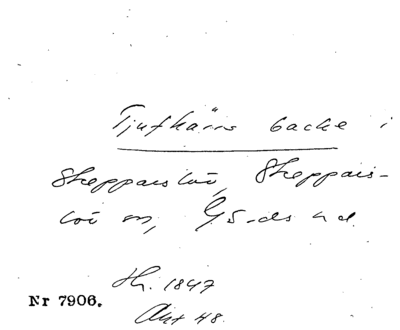 Tjufkärrs backe i
Skepparslöv, Skeppars-
löv sn, G
Hr. 1847
Akt 48.
Nr 7906.